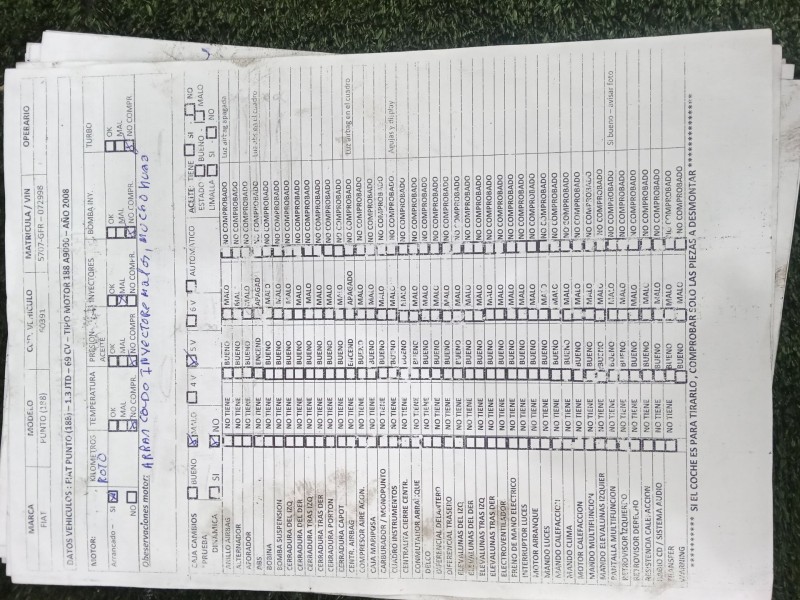 MARCA MODELO VEHICULO MATRICULA / VIN OPERARIO
FIAT PUNTO (188) 5707-GFR – 072996
DATOS VEHICULOS: FIAT PUNTO (188) – 1.3 JTD – 69 CV – TIPO MOTOR 188 A9000 – AÑO 2008
MOTOR: KILOMETROS TEMPERATURA PRESION ACEITE INYECTORES BOMBA INY. TURBO
ROTO
Arrancado – SI OK OK OK OK OK
NO MAL MAL MAL MAL MAL
NO COMPR NO COMPR NO COMPR. NO COMPR. NO COMPR
Observaciones motor: ARRANCADO INYECTORE MALOS, MUCHO
CAJA CAMBIOS BUENO MALO 4 V 5V 6 V AUTOMÁTICO ACEITE TIENE SI NO
*PRUEBA ESTADO BUENO MALO
DINAMICA SI NO LIMALLA SI NO
ANILLO AIRBAG NO TIENE BUENO MALO NO COMPROBADO Luz airbag apagada
ALTERNADOR NO TIENE BUENO MALO NO COMPROBADO
AFORADOR NO TIENE BUENO MALO NO COMPROBADO
ABS NO TIENE ENCEND APAGAD NO COMPROBADO
BOBINA NO TIENE BUENO MALO NO COMPROBADO
BOMBA SUSPENSION NO TIENE BUENO MALO NO COMPROBADO
CERRADURA DEL IZQ NO TIENE BUENO MALO NO COMPROBADO
CERRADURA DEL DER NO TIENE BUENO MALO NO COMPROBADO
CERRADURA TRAS IZQ NO TIENE BUENO MALO NO COMPROBADO
CERRADURA TRAS DER NO TIENE BUENO MALO NO COMPROBADO
CERRADURA PORTON NO TIENE BUENO MALO NO COMPROBADO
CERRADURA CAPOT NO TIENE BUENO MALO NO COMPROBADO
CENTR. AIRBAG NO TIENE ENCEND APAGADO NO COMPROBADO Luz airbag en el cuadro
COMPRESOR AIRE ACON. NO TIENE BUENO MALO NO COMPROBADO
CAJA MARIPOSA NO TIENE BUENO MALO NO COMPROBADO
CARBURADOR / MONOPUNTO NO TIENE BUENO MALO NO COMPROBADO
CUADRO INSTRUMENTOS NO TIENE BUENO MALO NO COMPROBADO Agujas y display
CENTRALITA CIERRE CENTR. NO TIENE BUENO MALO NO COMPROBADO
CONMUTADOR ARRANQUE NO TIENE BUENO MALO NO COMPROBADO
DELCO NO TIENE BUENO MALO NO COMPROBADO
DIFERENCIAL DELANTERO NO TIENE BUENO MALO NO COMPROBADO
DIFERENCIAL TRASERO NO TIENE BUENO MALO NO COMPROBADO
ELEVALUNAS DEL IZQ NO TIENE BUENO MALO NO COMPROBADO
ELEVALUNAS DEL DER NO TIENE BUENO MALO NO COMPROBADO
ELEVALUNAS TRAS IZQ NO TIENE BUENO MALO NO COMPROBADO
ELEVALUNAS TRAS DER NO TIENE BUENO MALO NO COMPROBADO
ELECTROVENTILADOR NO TIENE BUENO MALO NO COMPROBADO
FRENO DE MANO ELECTRICO NO TIENE BUENO MALO NO COMPROBADO
INTERRUPTOR LUCES NO TIENE BUENO MALO NO COMPROBADO
MOTOR ARRANQUE NO TIENE BUENO MALO NO COMPROBADO
MANDO LUCES NO TIENE BUENO MALO NO COMPROBADO
MANDO CALEFACCION NO TIENE BUENO MALO NO COMPROBADO
MANDO CLIMA NO TIENE BUENO MALO NO COMPROBADO
MOTOR CALEFACCION NO TIENE BUENO MALO NO COMPROBADO
MANDO MULTIFUNCION NO TIENE BUENO MALO NO COMPROBADO
MANDO ELEVALUNAS IZQUIER NO TIENE BUENO MALO NO COMPROBADO
PANTALLA MULTIFUNCION NO TIENE BUENO MALO NO COMPROBADO Si bueno – avisar foto
RETROVISOR IZQUIERDO NO TIENE BUENO MALO NO COMPROBADO
RETROVISOR DERECHO NO TIENE BUENO MALO NO COMPROBADO
RESISTENCIA CALEFACCION NO TIENE BUENO MALO NO COMPROBADO
RADIO CD / SISTEMA AUDIO NO TIENE BUENO MALO NO COMPROBADO
TRANSFER NO TIENE BUENO MALO NO COMPROBADO
WARNING BUENO MALO NO COMPROBADO
*********** SI EL COCHE ES PARA TIRARLO, COMPROBAR SOLO LAS PIEZAS A DESMONTAR ***********